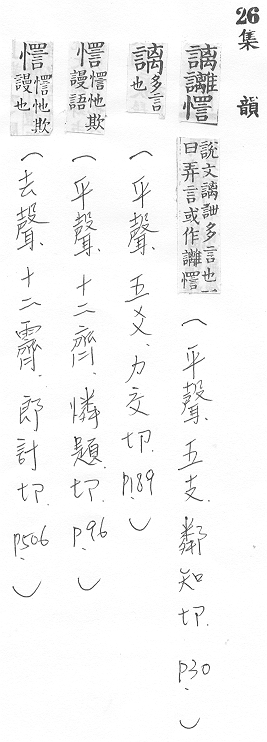 26 集韻
謧㦒 說文謧詍多言也一曰弄言或作㦒 (平聲. 五支. 鄰知切. P30.)
謧 多言也 (平聲. 五爻. 力交切. P.189)
㦒 㦒忚欺謾語 (平聲. 十二齊. 憐題切. P.96.)
㦒 㦒忚欺謾也 (去聲. 十二霽. 郎計切. P.506.)